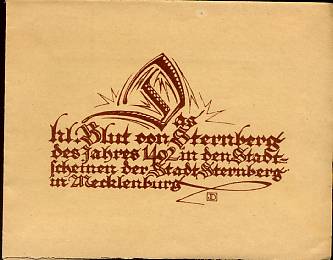 Das
hl. Blut von Sternberg
des Jahres 1492 in den Stadt-
scheinen der Stadt Sternberg
in Mecklenburg